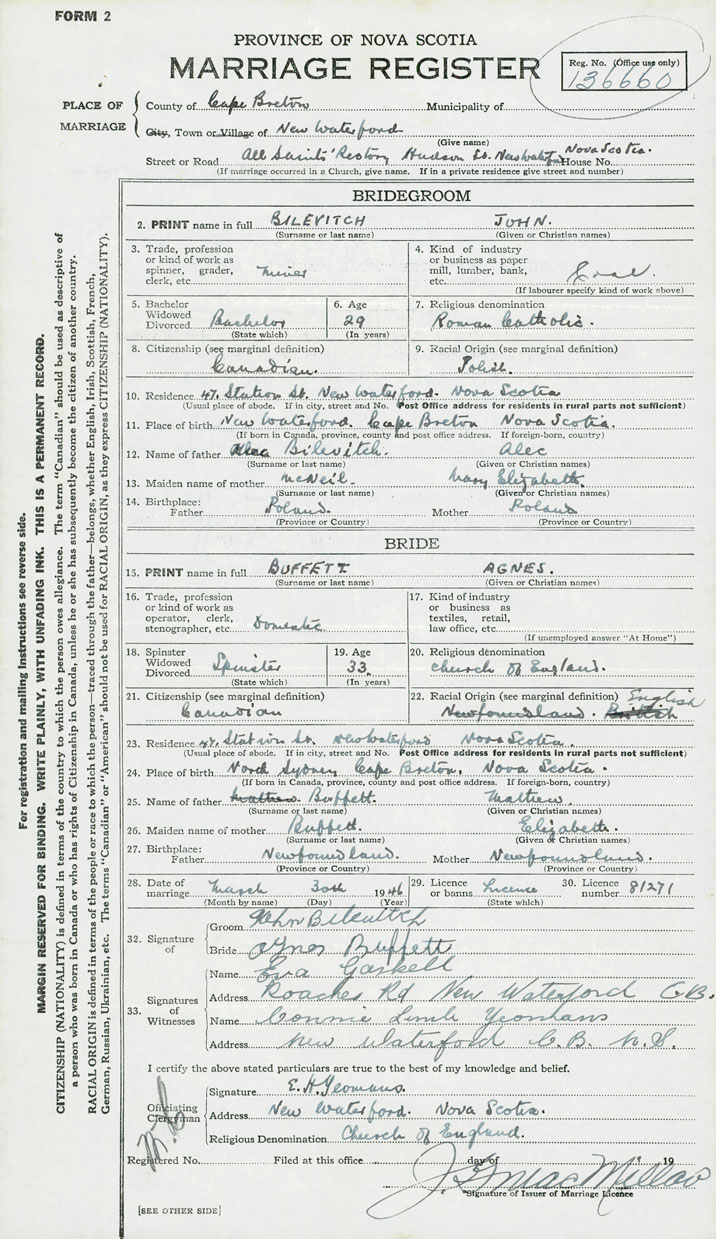 FORM 2
PROVINCE OF NOVA SCOTIA
MARRIAGE REGISTER
Reg. No. (Office use only)
136660
PLACE OF MARRIAGE
County of Cape Breton Municipality of
City, Town or Village of New Waterford
(Give name)
Street or Road All Saints' Rectory Hudson St. New Waterford House No. Nova Scotia.
(If marriage occurred in a Church, give name. If in a private residence give street and number)
BRIDEGROOM
2. PRINT name in full BILEVITCH JOHN.
(Surname or last name) (Given or Christian names)
3. Trade, profession or kind of work as spinner, grader, clerk, etc. miner
4. Kind of industry or business as paper mill, lumber, bank, etc. Coal.
(If labourer specify kind of work above)
5. Bachelor Widowed Divorced Bachelor
(State which)
6. Age 29
(In years)
7. Religious denomination
Roman Catholic.
8. Citizenship (see marginal definition)
Canadian.
9. Racial Origin (see marginal definition)
Polish.
10. Residence 47. Station St. New Waterford. Nova Scotia
(Usual place of abode. If in city, street and No. Post Office address for residents in rural parts not sufficient)
11. Place of birth New Waterford. Cape Breton Nova Scotia.
(If born in Canada, province, county and post office address. If foreign-born, country)
12. Name of father Alec Bilevitch. Alec
(Surname or last name) (Given or Christian names)
13. Maiden name of mother McNeil. Mary Elizabeth.
(Surname or last name) (Given or Christian names)
14. Birthplace: Father Poland. Mother Poland
(Province or Country) (Province or Country)
BRIDE
15. PRINT name in full BUFFETT AGNES.
(Surname or last name) (Given or Christian names)
16. Trade, profession or kind of work as operator, clerk, stenographer, etc. Domestic
17. Kind of industry or business as textiles, retail, law office, etc.
(If unemployed answer "At Home")
18. Spinster Widowed Divorced Spinster
(State which)
19. Age 33
(In years)
20. Religious denomination
Church of England.
21. Citizenship (see marginal definition)
Canadian
22. Racial Origin (see marginal definition) English
Newfoundland. British
23. Residence 47. Station St. New Waterford Nova Scotia.
(Usual place of abode. If in city, street and No. Post Office address for residents in rural parts not sufficient)
24. Place of birth Nord Sydney Cape Breton, Nova Scotia.
(If born in Canada, province, county and post office address. If foreign-born, country)
25. Name of father Mathew Buffett. Mathew
(Surname or last name) (Given or Christian names)
26. Maiden name of mother Buffett. Elizabeth.
(Surname or last name) (Given or Christian names)
27. Birthplace: Father Newfoundland. Mother Newfoundland.
(Province or Country) (Province or Country)
28. Date of marriage March 30th 1946
(Month by name) (Day) (Year)
29. Licence or banns Licence
(State which)
30. Licence number 81271
32. Signature of
Groom John Bilevitch
Bride Agnes Buffett
33. Signatures of Witnesses
Name Eva Gaskell
Address Roaches Rd New Waterford C.B.
Name Connie Yeomans
Address New Waterford C.B. N.S.
I certify the above stated particulars are true to the best of my knowledge and belief.
Officiating Clergyman
Signature E. H. Yeomans.
Address New Waterford. Nova Scotia.
Religious Denomination Church of England.
Registered No. Filed at this office day of 19
Signature of Issuer of Marriage Licence
[SEE OTHER SIDE]
For registration and mailing instructions see reverse side.
MARGIN RESERVED FOR BINDING. WRITE PLAINLY, WITH UNFADING INK. THIS IS A PERMANENT RECORD.
CITIZENSHIP (NATIONALITY) is defined in terms of the country to which the person owes allegiance. The term "Canadian" should be used as descriptive of
a person who was born in Canada or who has rights of Citizenship in Canada, unless he or she has subsequently become the citizen of another country.
RACIAL ORIGIN is defined in terms of the people or race to which the person—traced through the father—belongs, whether English, Irish, Scottish, French,
German, Russian, Ukrainian, etc. The terms "Canadian" or "American" should not be used for RACIAL ORIGIN, as they express CITIZENSHIP (NATIONALITY).